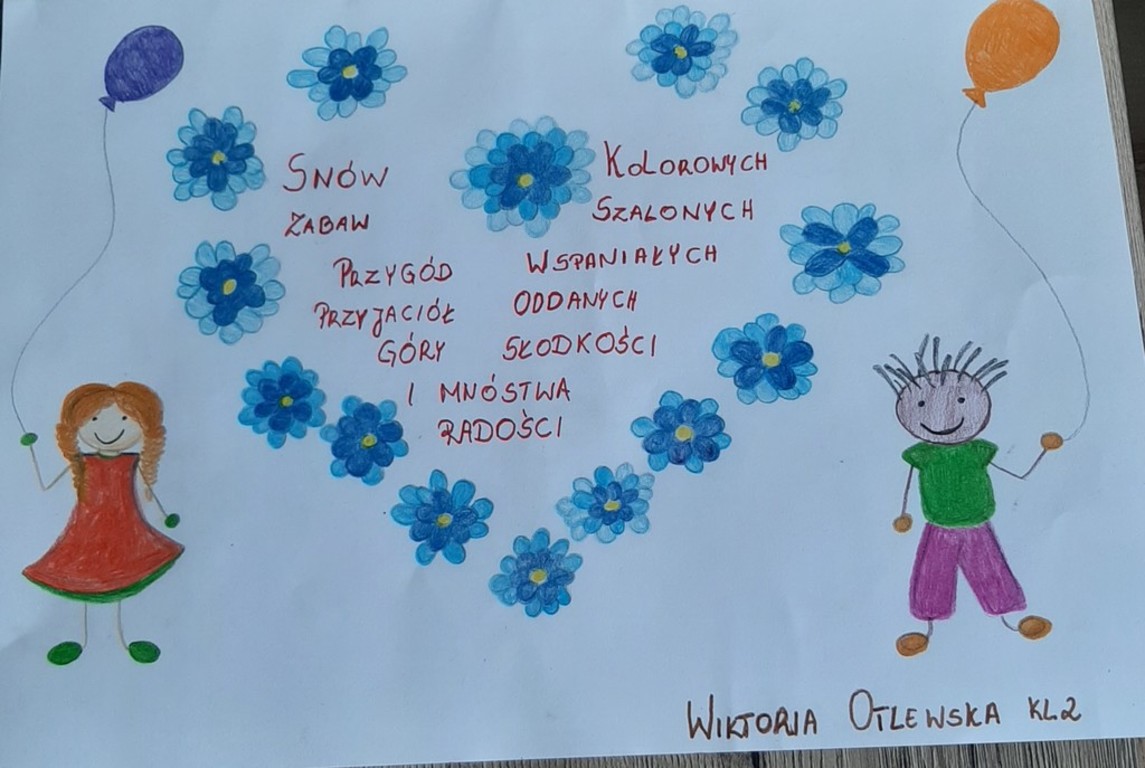 SNÓW KOLOROWYCH
ZABAW SZALONYCH
PRZYGÓD WSPANIAŁYCH
PRZYJACIÓŁ ODDANYCH
GÓRY SŁODKOŚCI
I MNÓSTWA
RADOŚCI
WIKTORIA OTLEWSKA KL.2